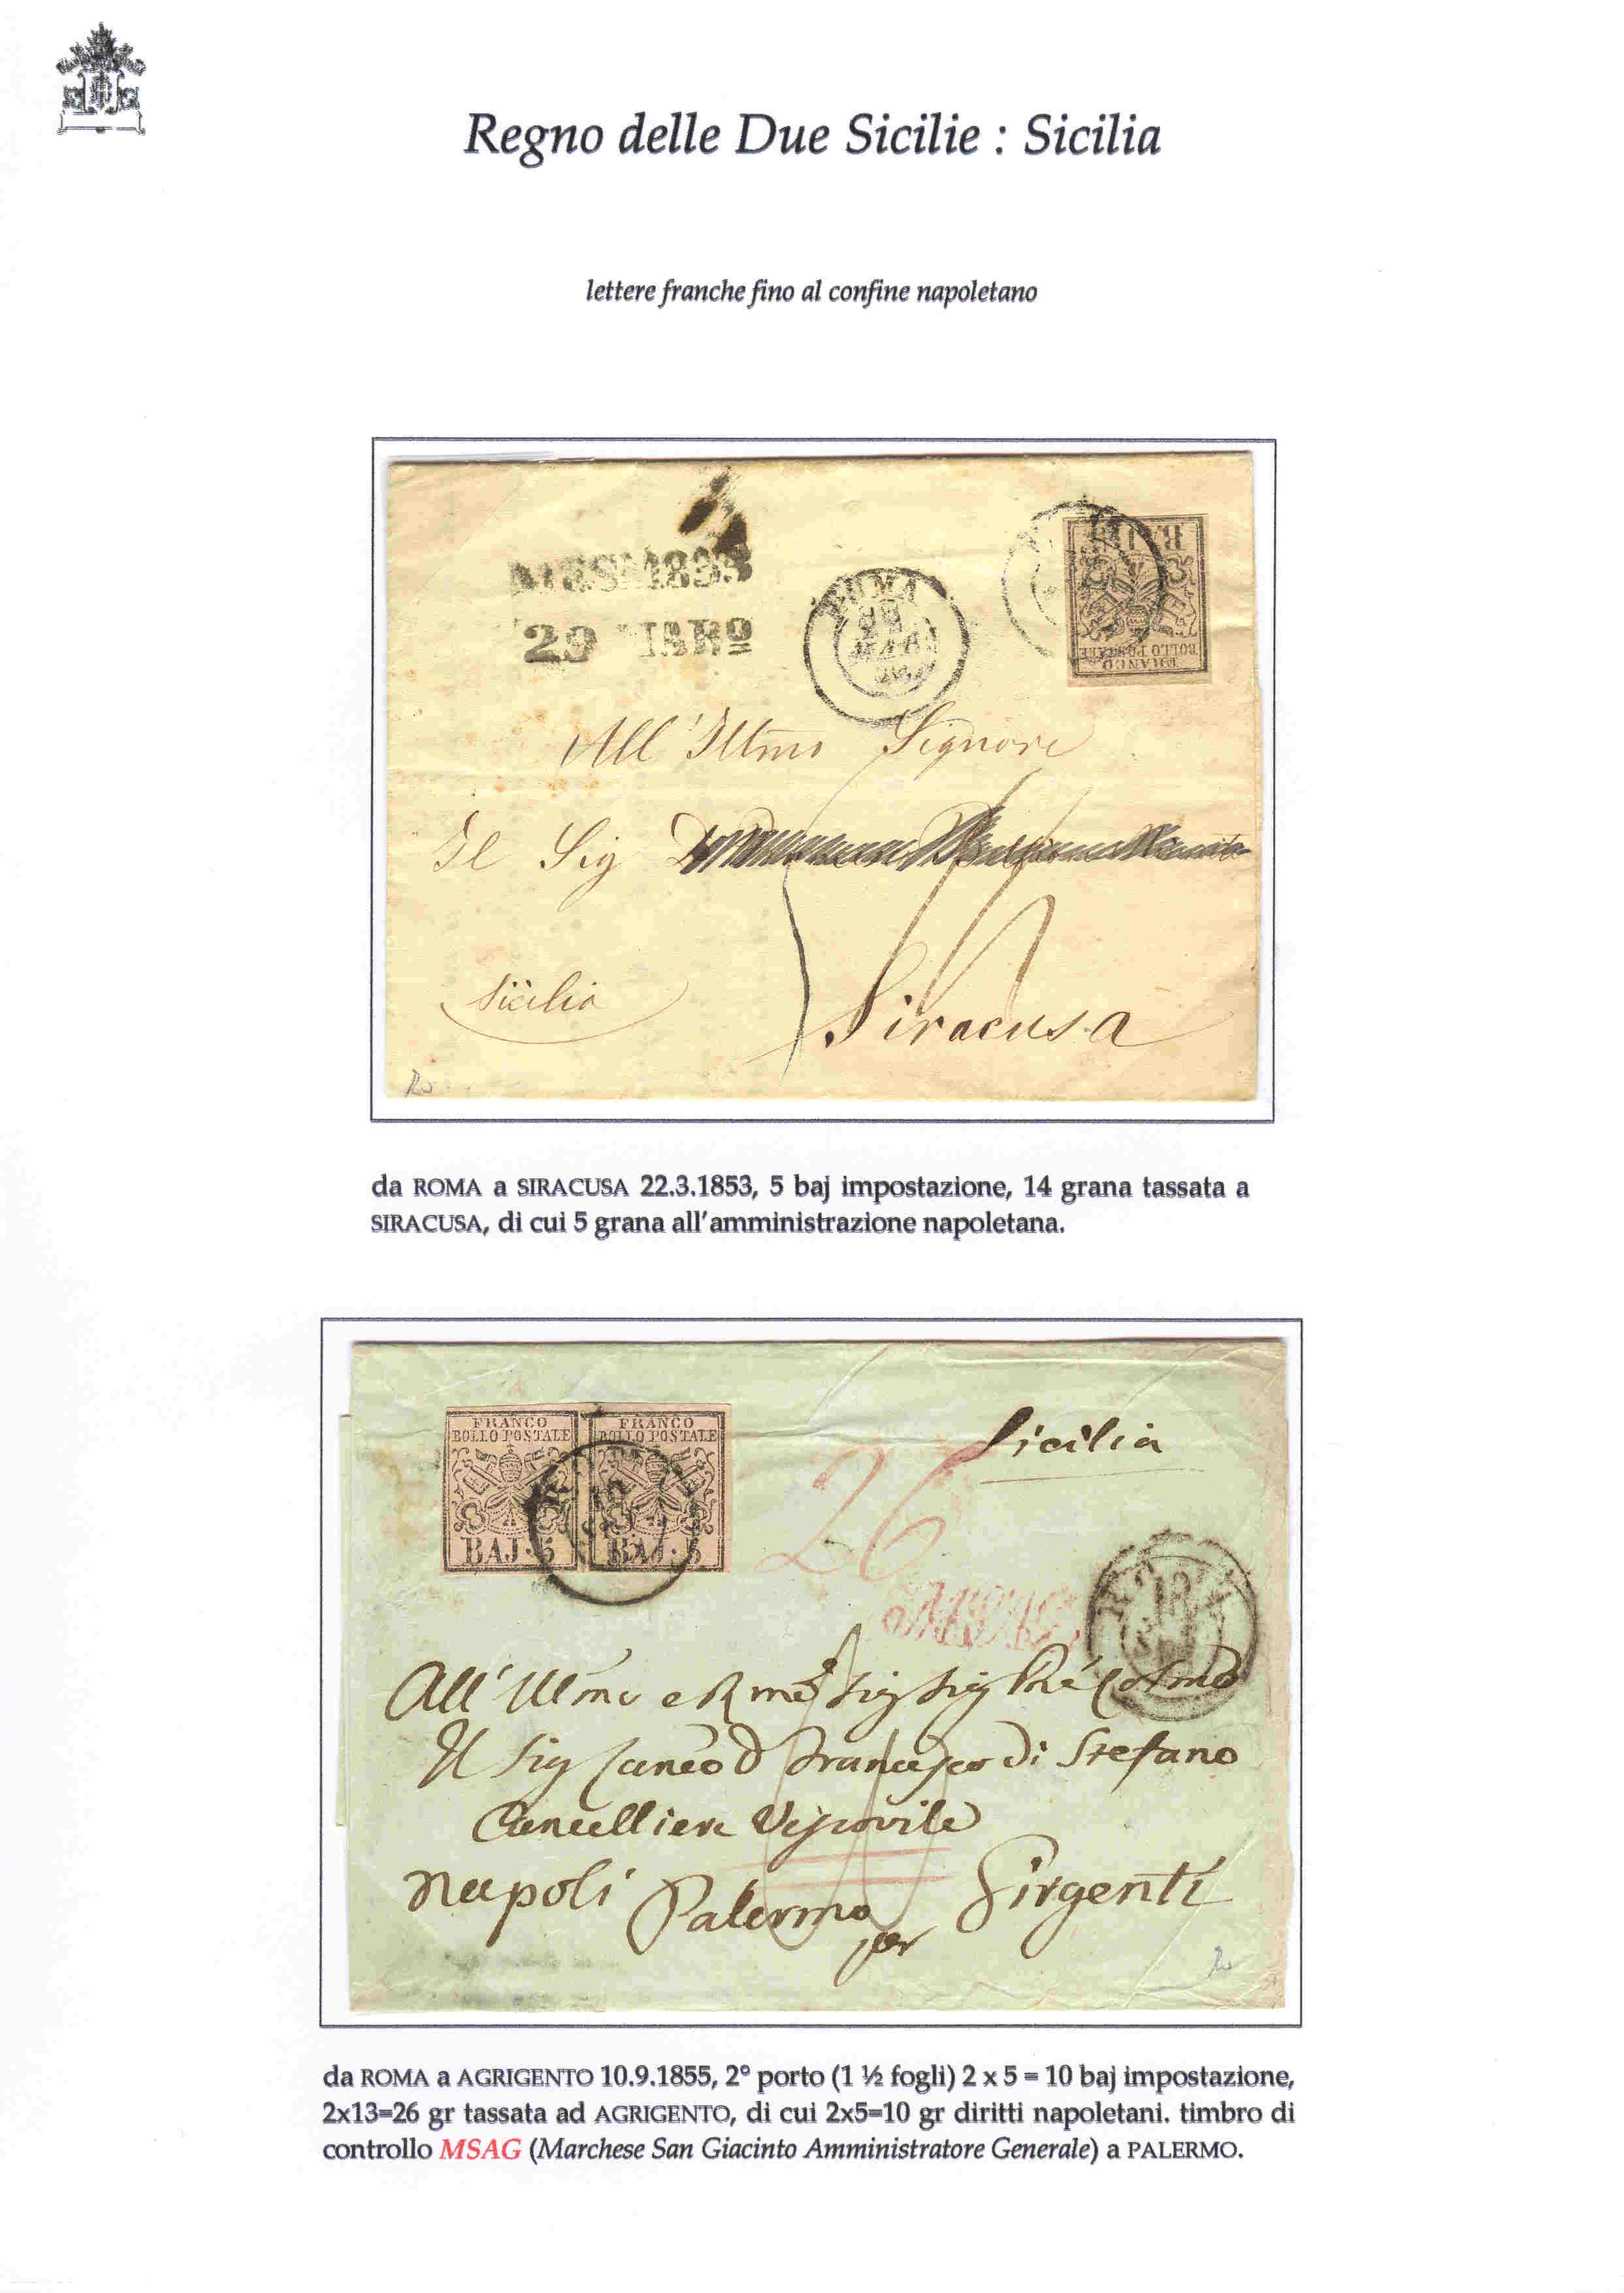 Regno delle Due Sicilie : Sicilia
lettere franche fino al confine napoletano
29
ROMA
BOLLO POSTALE
All' Illmo Signore
Il Sig D
Sicilia
Siracusa
da ROMA a SIRACUSA 22.3.1853, 5 baj impostazione, 14 grana tassata a
SIRACUSA, di cui 5 grana all'amministrazione napoletana.
FRANCO FRANCO
BOLLO POSTALE BOLLO POSTALE
BAJ·5 BAJ·5
Sicilia
26
All' Illmo e Rmo Sig Sig
Il Sig Canco D Francesco di Stefano
Cancelliere Vescovile
Napoli Palermo per Girgenti
da ROMA a AGRIGENTO 10.9.1855, 2° porto (1 ½ fogli) 2 x 5 = 10 baj impostazione,
2x13=26 gr tassata ad AGRIGENTO, di cui 2x5=10 gr diritti napoletani. timbro di
controllo MSAG (Marchese San Giacinto Amministratore Generale) a PALERMO.